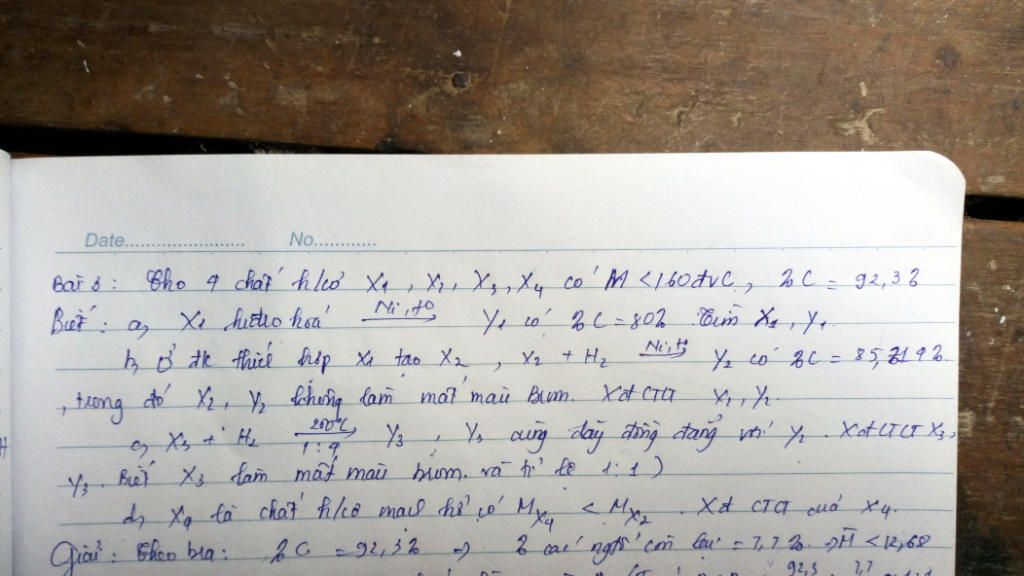 Date.................... No............
Bài 3: Cho 4 chất h/cơ X1, X2, X3, X4 có M < 160 đvC, %C = 92,3%
Biết: a, X1 hiđro hoá Ni, t0 → Y1 có %C = 80% Tìm X1, Y1
b, Ở đk thích hợp X1 tạo X2, X2 + H2 Ni, t0 → Y2 có %C = 85,719%.
, trong đó X2, Y2 không làm mất màu Brom. Xđ CTCT X2, Y2
c, X3 + H2 200°C 1:4 → Y3, Y3 cùng dãy đồng đẳng với Y2. Xđ CTCT X3,
Y3. Biết X3 làm mất màu brom và tỉ lệ 1:1)
d, X4 là chất h/cơ mạch hở có MX4 < MX2. Xđ CTCT của X4.
Giải: Theo bra: %C = 92,3% => % các ngtố còn lại = 7,7% => M < 12,68
92,3 7,7